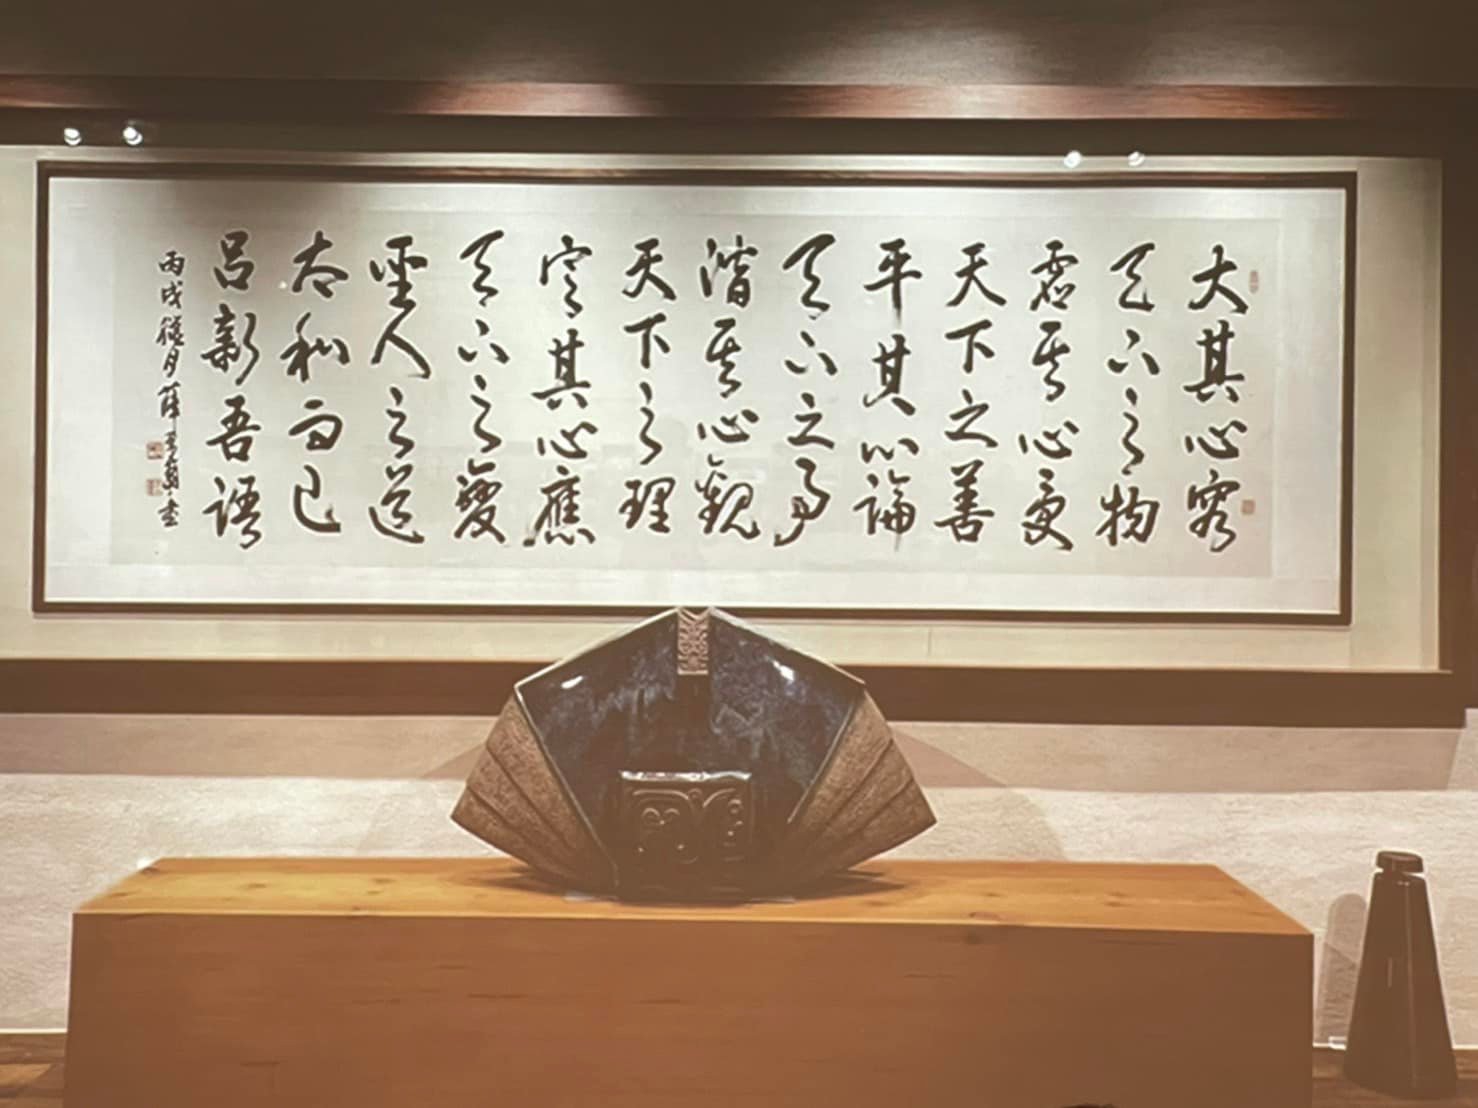 大其心容
天下之物
虛其心受
天下之善
平其心論
天下之事
潛其心觀
天下之理
定其心應
天下之變
聖人之道
太和而已
呂新吾語
丙戌 月薛 書